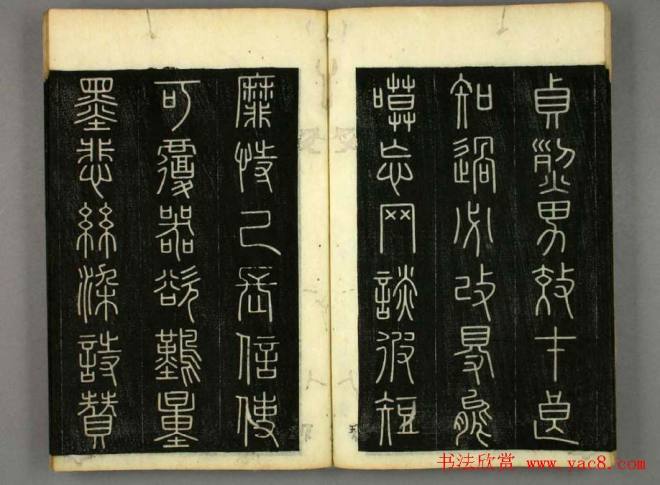 貞烈男效才良
知過必改得能
嗼忘网談彼短
靡恃己長信使
可覆器欲難量
墨悲絲染詩贊
书法欣赏 www.yac8.com